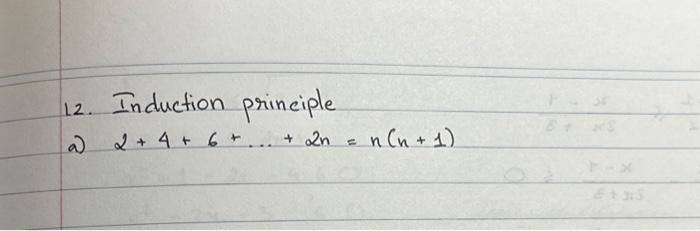 12. Induction principle
a) 2 + 4 + 6 + ... + 2n = n(n + 1)